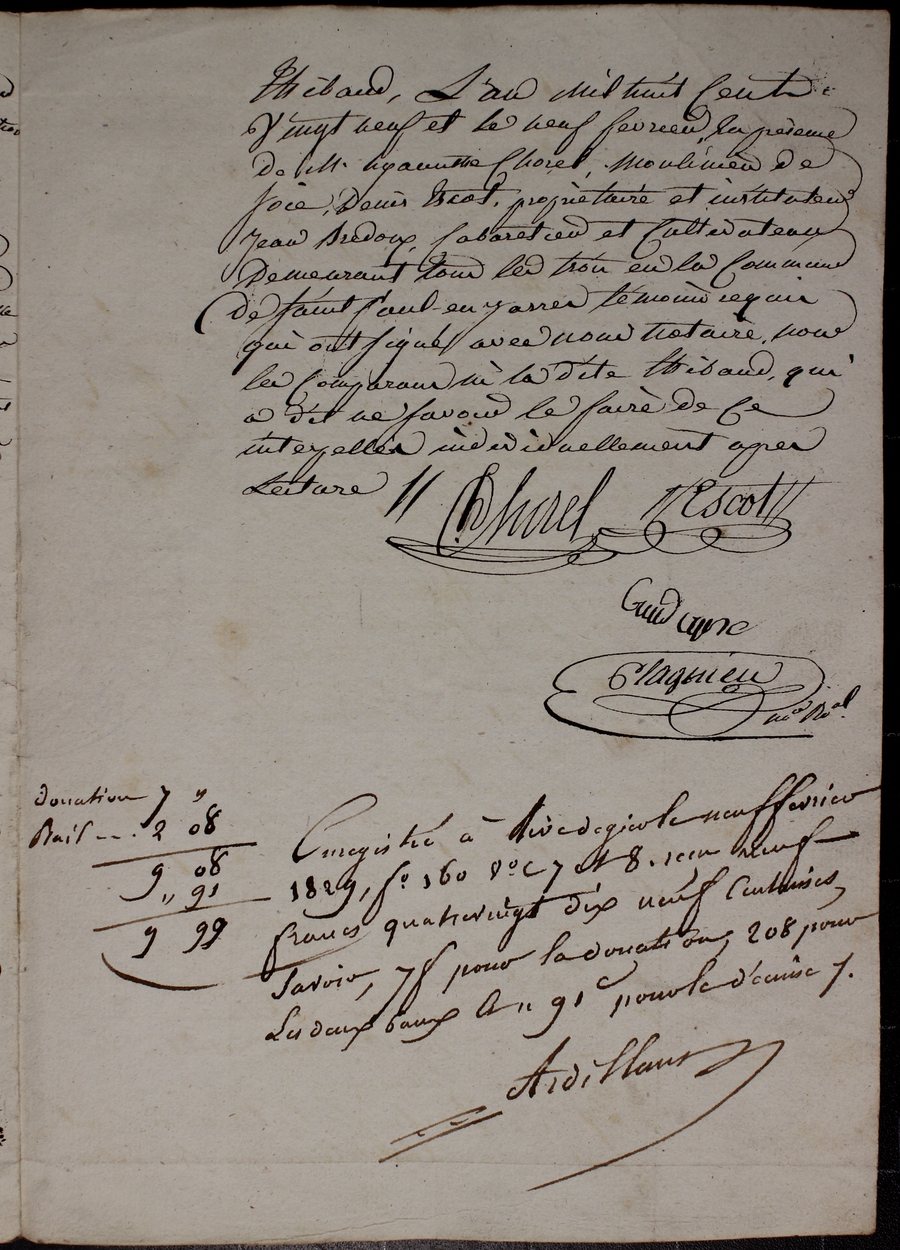 Thibaud, L'an mil huit Cent
Vingt neuf et le neuf fevrier, En présence
De Mr hyacinthe Chorel, Moulinier de
soie, Denis Escot, propriétaire et instituteur
Jean Bredoux, Cabaretier et Cultivateur
Demeurant tous les trois en la Commune
De saint Paul-en-jarret témoins requis
qui ont signé avec nous notaire, non
les Comparans ni la dite thibaud, qui
a dit ne savoir le faire de Ce
interpellés individuellement après
Lecture //
Chorel Escot

Plagnieu
nre Ral
Donation 7 "
Bail --- 2 08
9 08
" 91
9 99
Enregistré à Rivedegier le neuf fevrier
1829, fo 160 Vo C 7 et 8. reçu neuf
francs quatrevingt dix neuf Centimes,
Savoir, 7f pour la donation, 208 pour
Les deux baux et " 91c pour le décime /.
Ardillant